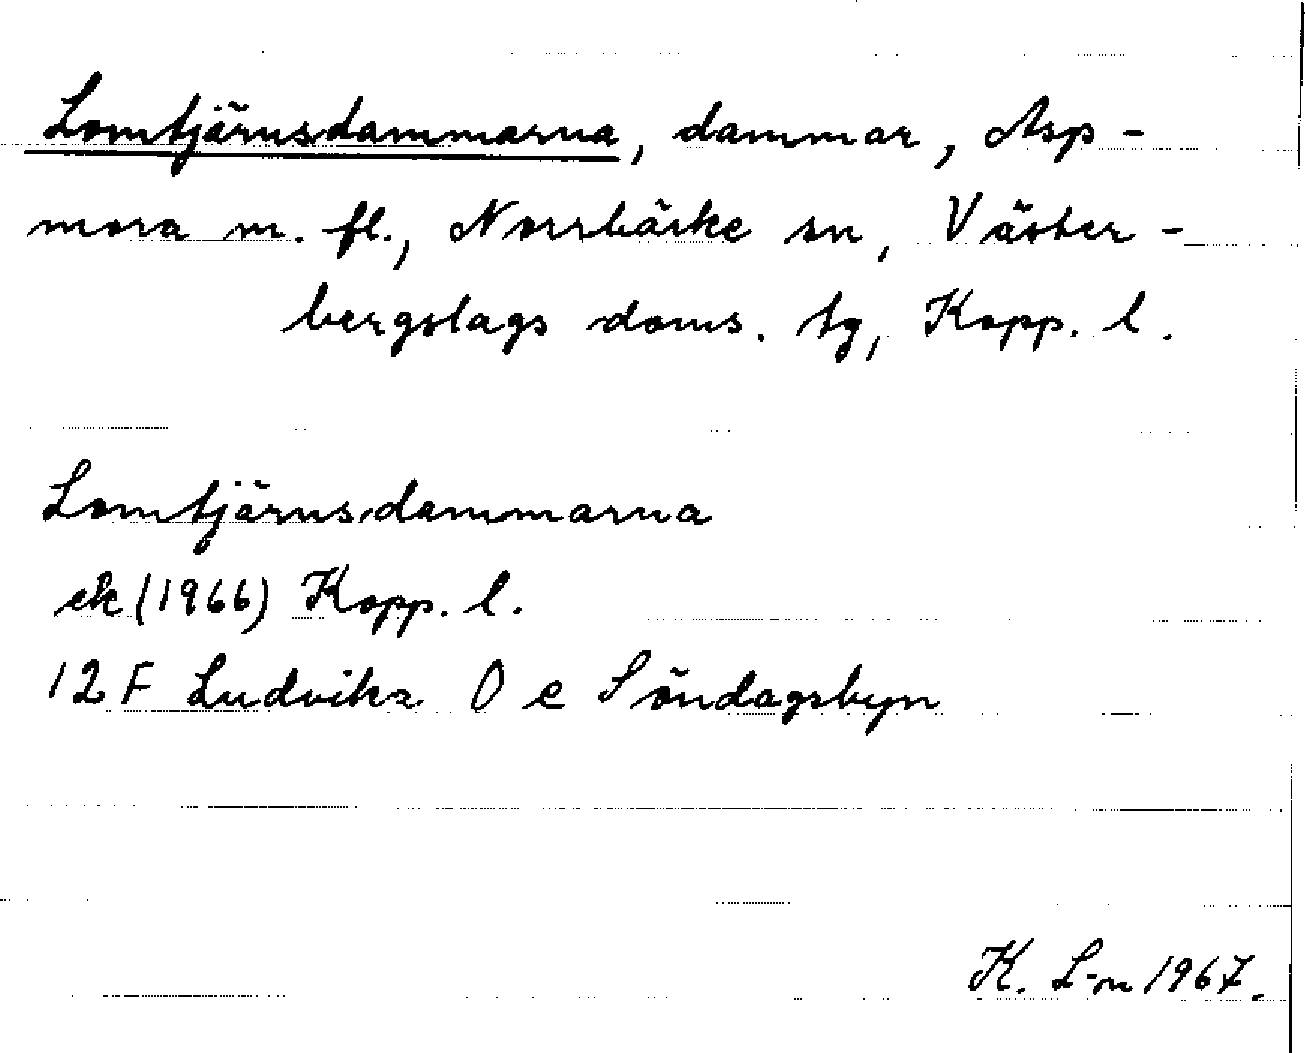 Lomtjärnsdammarna, dammar, Asp-
mora m. fl., Norrbärke sn, Väster-
bergslags doms. tg, Kopp. l.
Lomtjärnsdammarna
ek (1966) Kopp. l.
12 F Ludvika 0 e Söndagsbyn
K. L-n 1967.